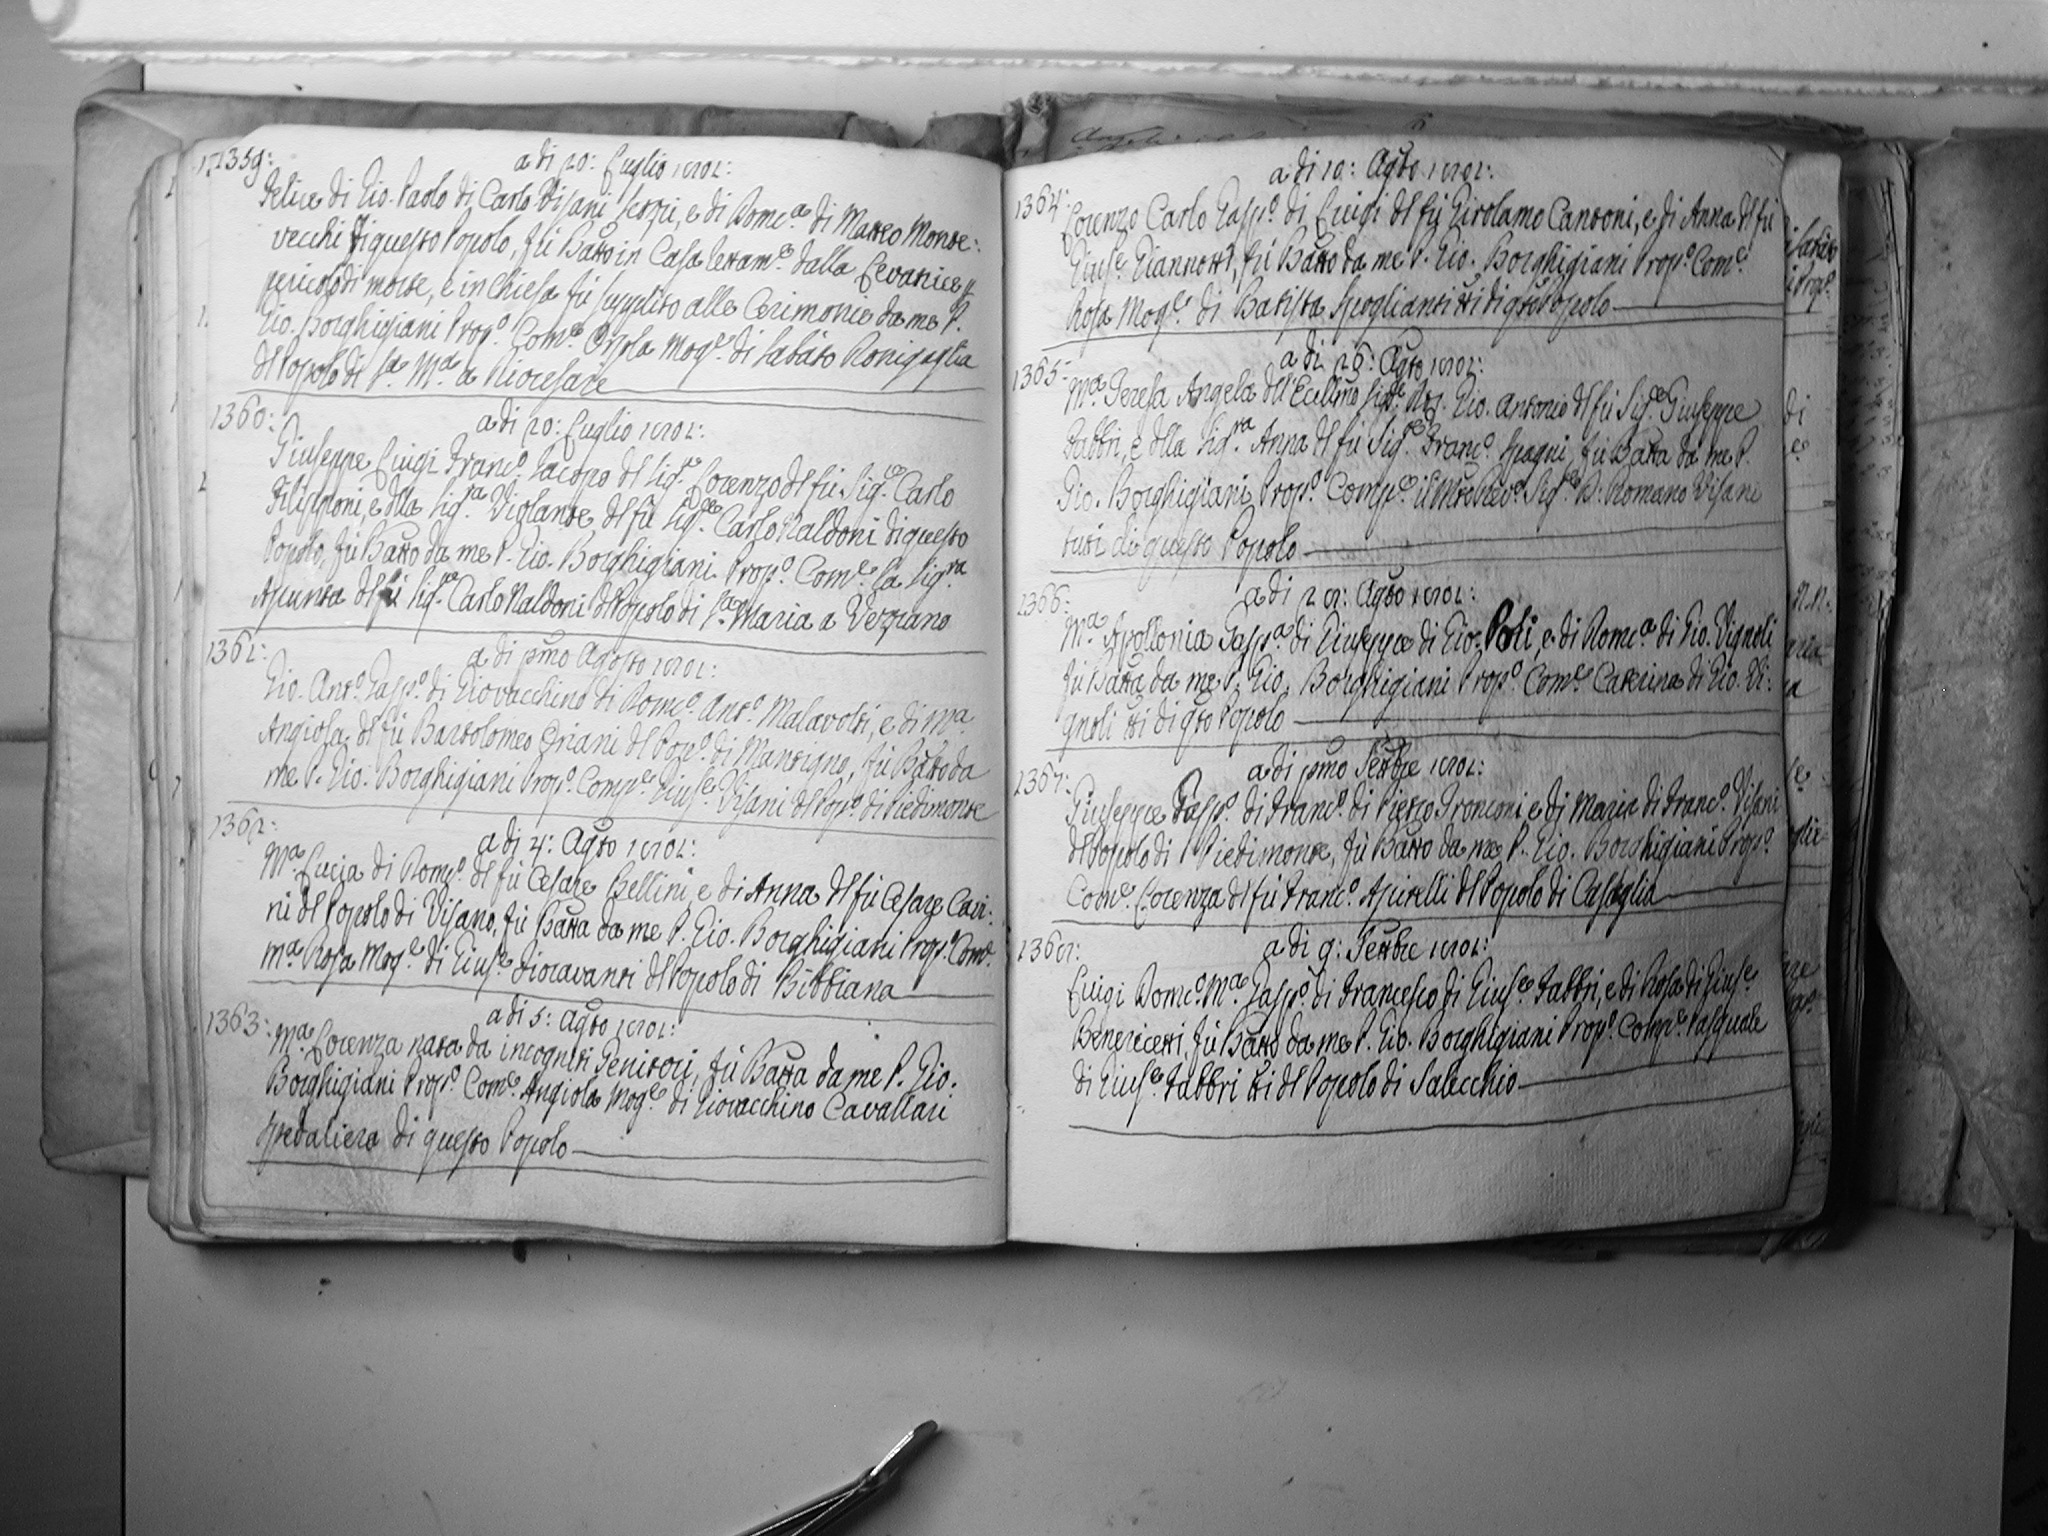 1359: a di 20: Luglio 1802:
Felice di Gio. Paolo di Carlo Visani Sezzi, e di Domc.a di Matteo Monte:
vecchi di questo Popolo, fù Batto in Casa lettam.e dalla Levatrice p
pericolo di morte, e in Chiesa fù supplito alle Cerimonie da me P.
Gio. Borghigiani Prop.o Com.e Orsola Mog.e di Sabato Ronigaglia
del Popolo di S.a M.a a Riocesare
1360: a di 20: Luglio 1802:
Giuseppe Luigi Franc.o Jacopo del Sig.re Lorenzo del fù Sig.re Carlo
Filipponi, e della Sig.ra Violante del fù Sig.re Carlo Naldoni di questo
Popolo, fù Batto da me P. Gio. Borghigiani Prop.o Com.e la Sig.ra
Assunta del fù Sig.re Carlo Naldoni del Popolo di S.a Maria a Vezzano
1361: a di pmo Agosto 1802:
Gio. Ant.o Gasp.o di Giovacchino di Domc.o Ant.o Malavolti, e di M.a
Angiola del fù Bartolomeo Oriani del Pop.o di Mantigno, fù Batto da
me P. Gio. Borghigiani Prop.o Comp.e Gius.e Visani del Pop.o di Piedimonte
1362: a di 4: Agto 1802:
M.a Lucia di Domc.o del fù Cesare Bellini, e di Anna del fù Cesare Cavi:
ni del Popolo di Visano, fù Batta da me P. Gio. Borghigiani Prop.o Com.e
M.a Rosa Mog.e di Gius.e Fioravanti del Popolo di Bibbiana
1363: a di 5: Agto 1802:
M.a Lorenza nata da incogniti Genitori, fù Batta da me P. Gio.
Borghigiani Prop.o Com.e Angiola Mog.e di Giovacchino Cavallari
Spedaliera di questo Popolo
1364: a di 10: Agto 1802:
Lorenzo Carlo Gasp.o di Luigi del fù Girolamo Cantoni, e di Anna del fù
Gius.e Giannotti, fù Batto da me P. Gio. Borghigiani Prop.o Com.e
Rosa Mog.e di Batista Spoglianti tti di qsto Popolo
1365: a di 26: Agto 1802:
M.a Teresa Angela dell'Ecellmo Sig.re Gio. Antonio del fù Sig.re Giuseppe
Fabbri, e della Sig.ra Anna del fù Sig.re Franc.o Spagni, fù Batta da me P.
Gio. Borghigiani Prop.o Comp.e il Sig.re D. Romano Visani
tutti di questo Popolo
1366: a di 28: Agto 1802:
M.a Apollonia Gasp.a di Giuseppe di Gio. Poli, e di Domc.a di Gio. Vignoli
fù Batta da me P. Gio. Borghigiani Prop.o Com.e Caterina di Gio. Vi:
gnoli tti di qsto Popolo
1367: a di pmo Settbre 1802:
Giuseppe Gasp.o di Franc.o di Pietro Tronconi e di Maria di Franc.o Visani
del Popolo di Piedimonte, fù Batto da me P. Gio. Borghigiani Prop.o
Com.e Lorenza del fù Franc.o Asirelli del Popolo di Casaglia
1368: a di 9: Settbre 1802:
Luigi Domc.o M.a Gasp.o di Francesco di Gius.e Fabbri, e di Rosa di Gius.e
Benericetti, fù Batto da me P. Gio. Borghigiani Prop.o Comp.e Pasquale
di Gius.e Fabbri tti del Popolo di Salecchio